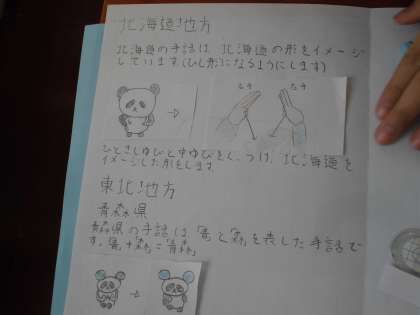 北海道地方
北海道の手話は、北海道の形をイメージ
しています(ひし形になるようにします)
ひとさしゆびと中ゆびをくっつけ、北海道を
イメージした形をします。
東北地方
青森県
青森県の手話は、「青」と「森」を表した手話で
す。「青」+「森」=「青森」